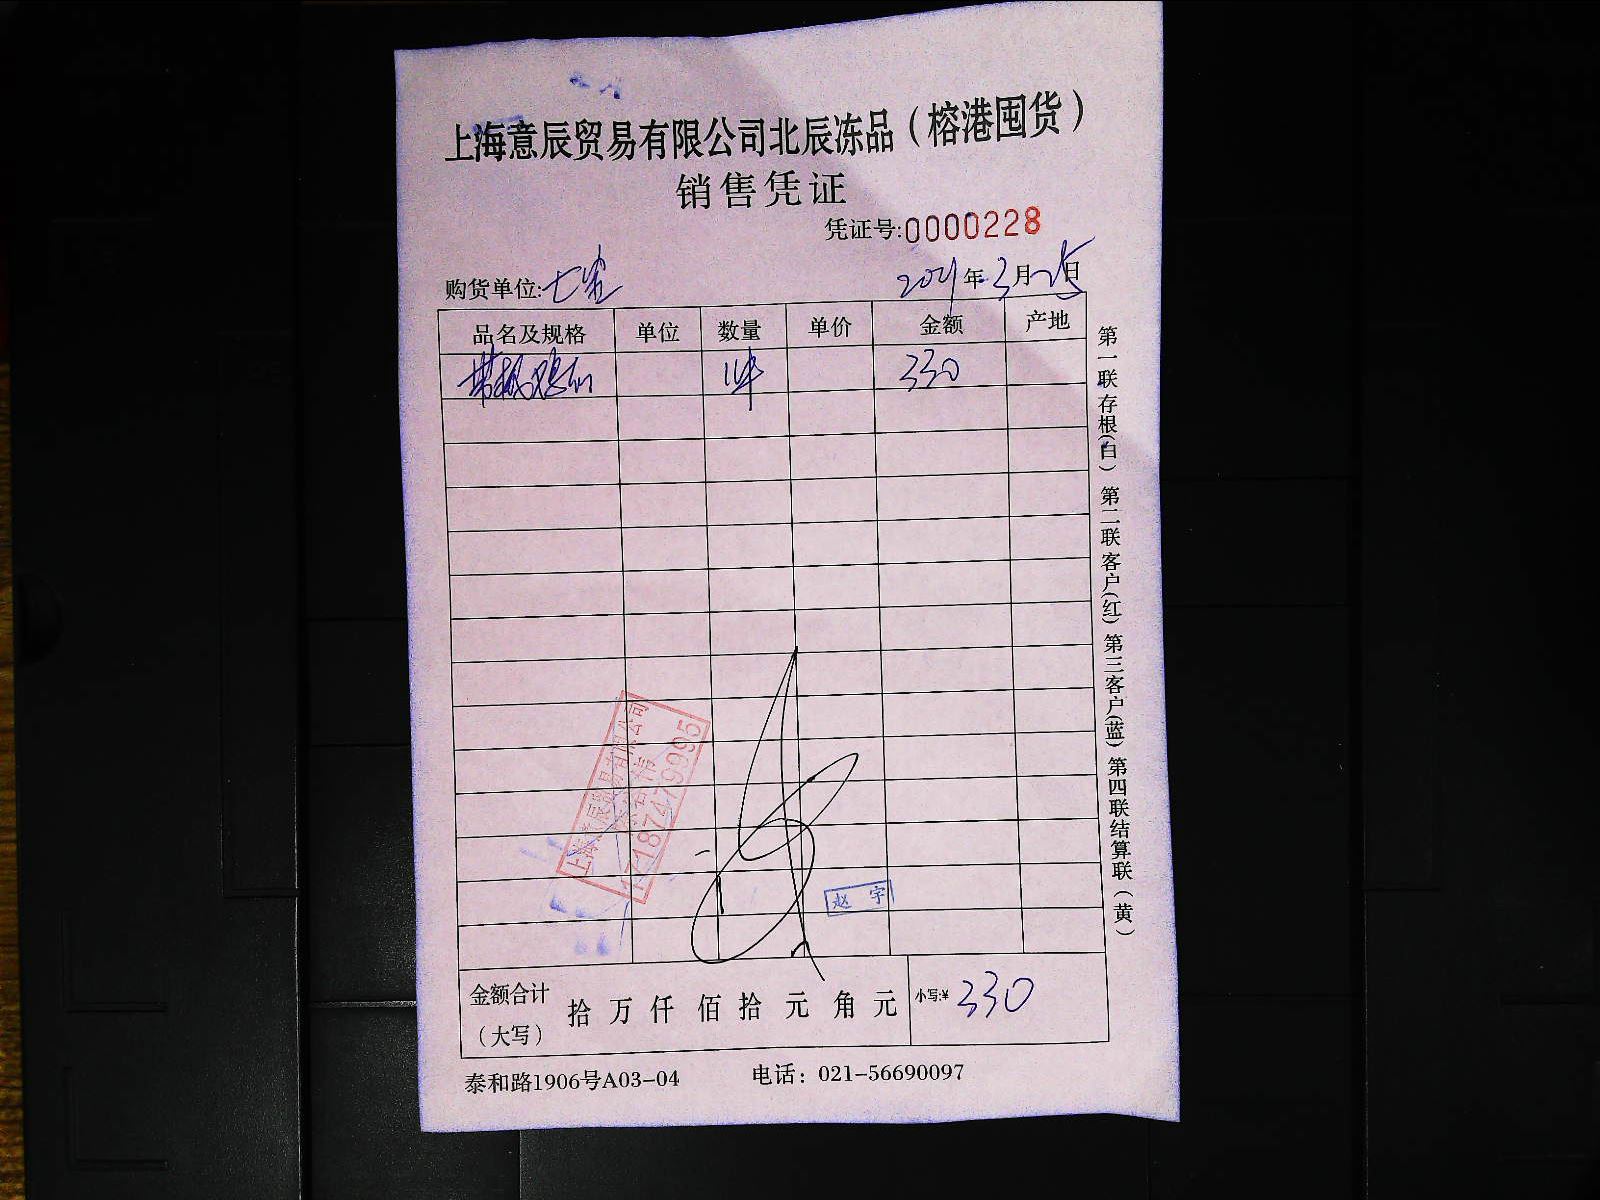 上海意辰贸易有限公司北辰冻品（榕港囤货）
销售凭证
凭证号:0000228
购货单位:七宝
年3月 日
品名及规格 单位 数量 单价 金额 产地
1件 330
上海意辰贸易有限公司
17187479995
赵宇
金额合计（大写） 拾 万 仟 佰 拾 元 角 元 小写:¥ 330
泰和路1906号A03-04 电话：021-56690097
第一联存根（白） 第二联客户（红） 第三客户（蓝） 第四联结算联（黄）